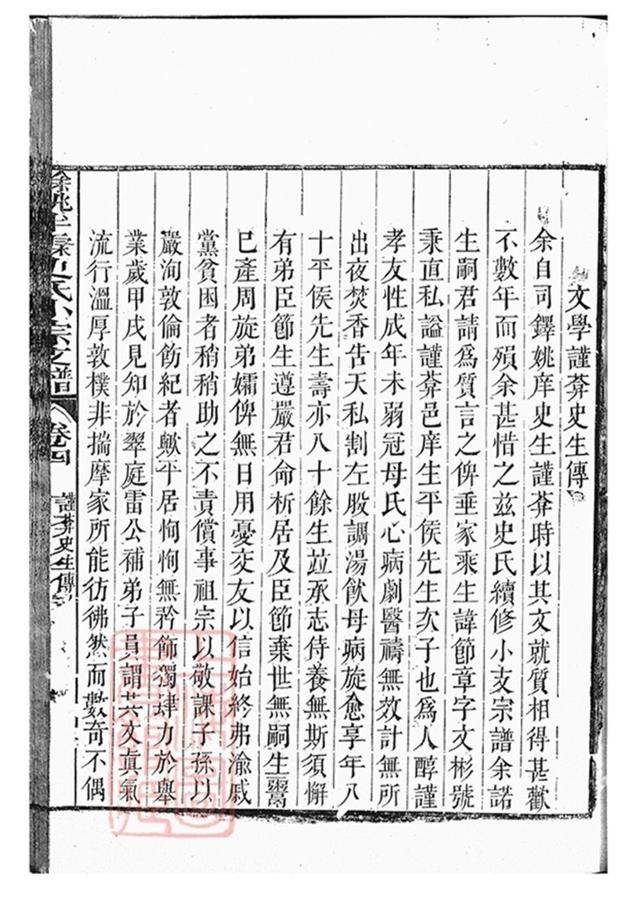 文學謹莾史生傳
余自司鐸姚庠史生謹莾時以其文就質相得甚歡
不數年而殞余甚惜之兹史氏續修小支宗譜余諾
生嗣君請爲質言之俾垂家乘生諱節章字文彬號
秉直私謚謹莾邑庠生平侯先生次子也爲人醇謹
孝友性成年未弱冠母氏心病劇醫禱無效計無所
出夜焚香告天私割左股調湯飲母病旋愈享年八
十平侯先生壽亦八十餘生並承志侍養無斯須懈
有弟臣節生遵嚴君命析居及臣節棄世無嗣生鬻
已產周旋弟孀俾無日用憂交友以信始終弗渝戚
黨貧困者稍稍助之不責償事祖宗以敬課子孫以
嚴洵敦倫飭紀者歟平居恂恂無矜飾獨肆力於舉
業歲甲戌見知於翠庭雷公補弟子員謂其文真氣
流行溫厚敦樸非揣摩家所能彷彿然而數奇不偶
餘姚半霖史氏小宗支譜
卷四
謹莾史生傳